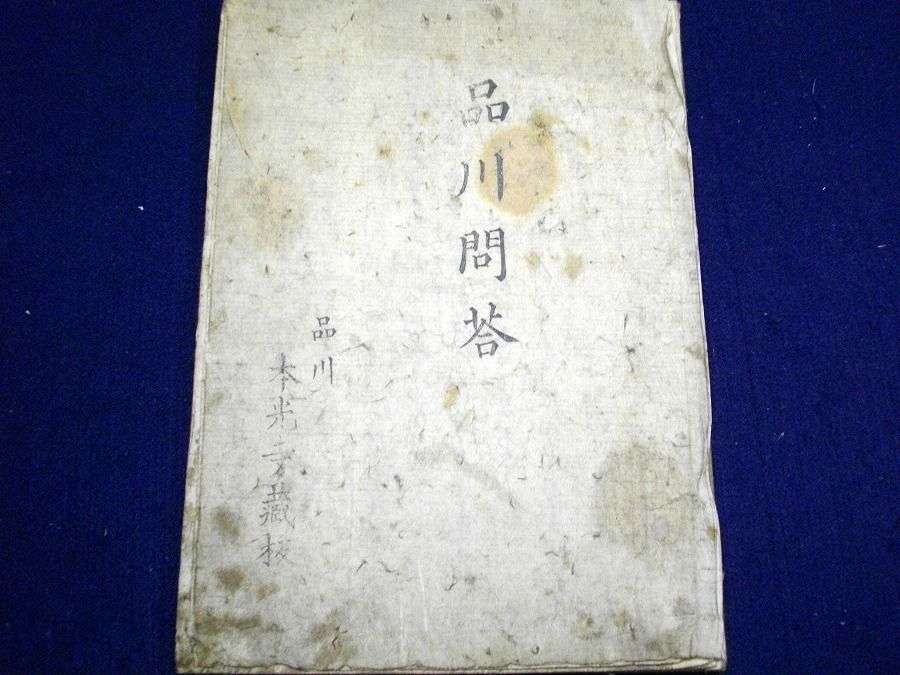 品川問荅
品川
本光寺藏板